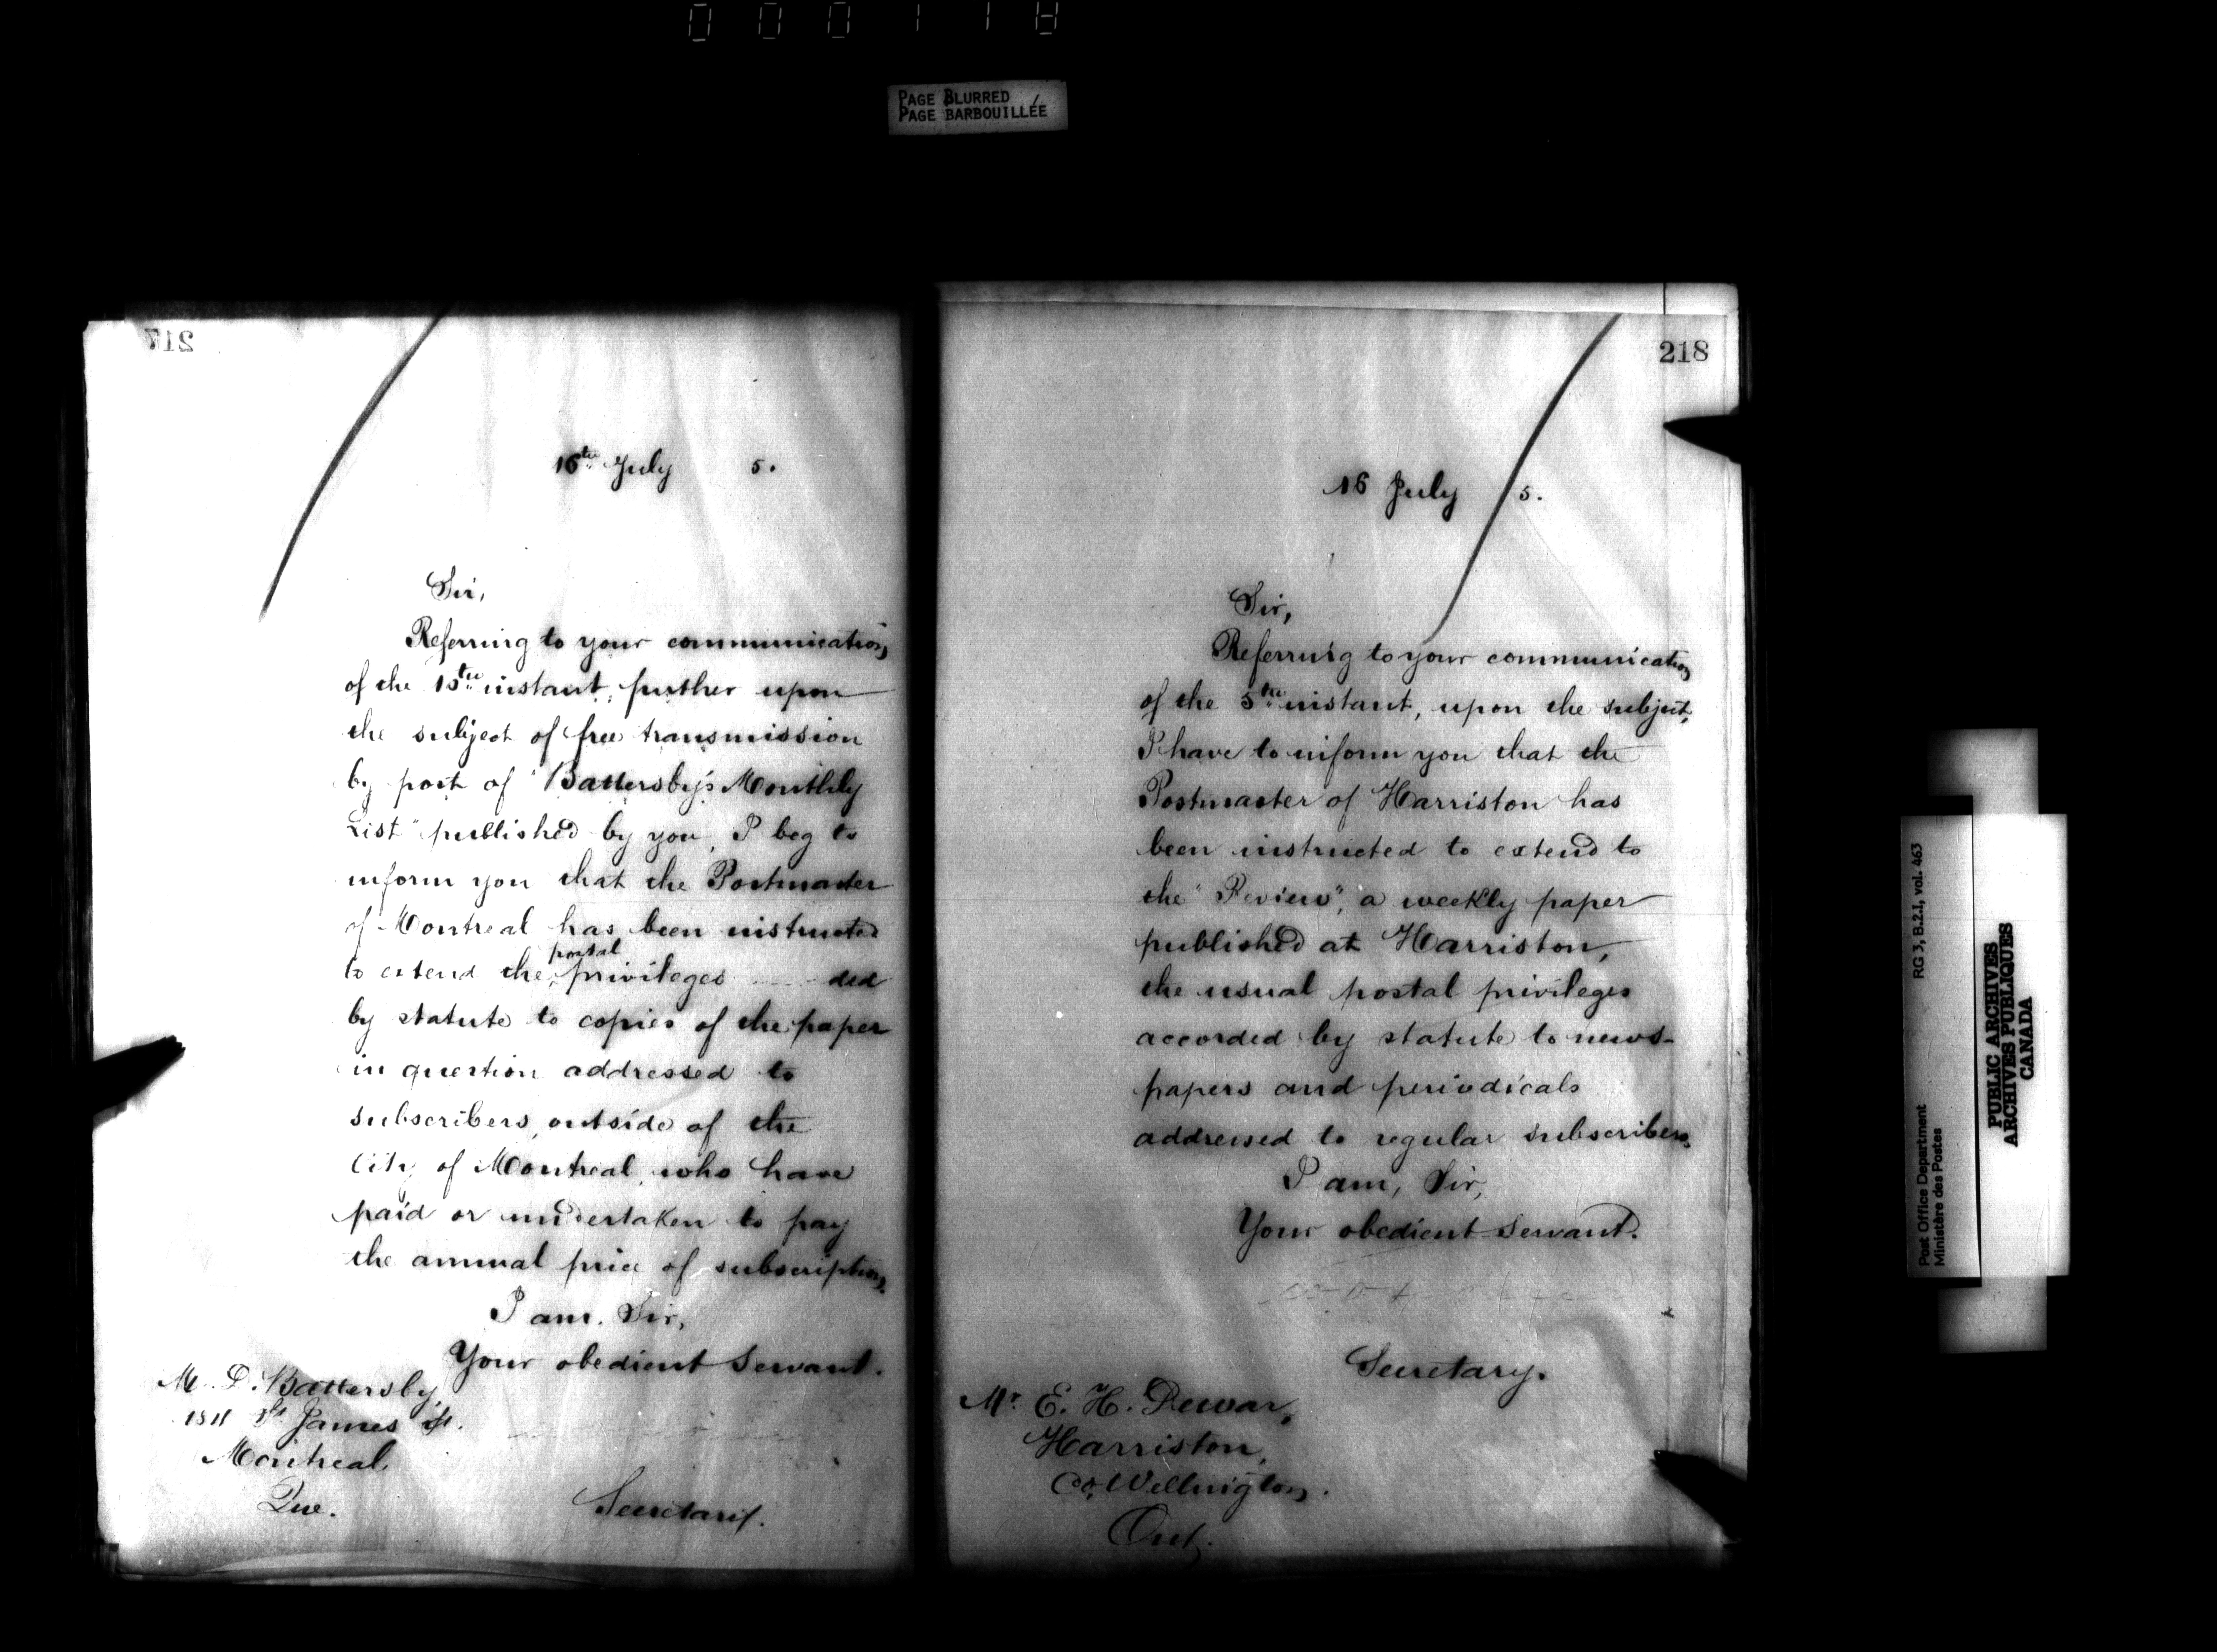 000118
PAGE BLURRED
PAGE BARBOUILLÉE
217
16th July 5.
Sir,
Referring to your communication
of the 15th instant, further upon
the subject of free transmission
by post of "Battersby's Monthly
List" published by you, I beg to
inform you that the Postmaster
of Montreal has been instructed
postal
to extend the privileges ded
by statute to copies of the paper
in question addressed to
subscribers, outside of the
City of Montreal, who have
paid or undertaken to pay
the annual price of subscription.
I am, Sir,
Your obedient Servant.
Mr. D. Battersby,
St James St.
Montreal,
Que.
Secretary.
218
16 July 5.
Sir,
Referring to your communication
of the 5th instant, upon the subject,
I have to inform you that the
Postmaster of Harriston has
been instructed to extend to
the "Review", a weekly paper
published at Harriston,
the usual postal privileges
accorded by statute to news-
papers and periodicals
addressed to regular subscribers.
I am, Sir,
Your obedient Servant.
Secretary.
Mr. E. H. Dewar,
Harriston,
Co. Wellington,
Ont.
Post Office Department
Ministère des Postes
RG 3, B.2.I, vol. 463
PUBLIC ARCHIVES
ARCHIVES PUBLIQUES
CANADA